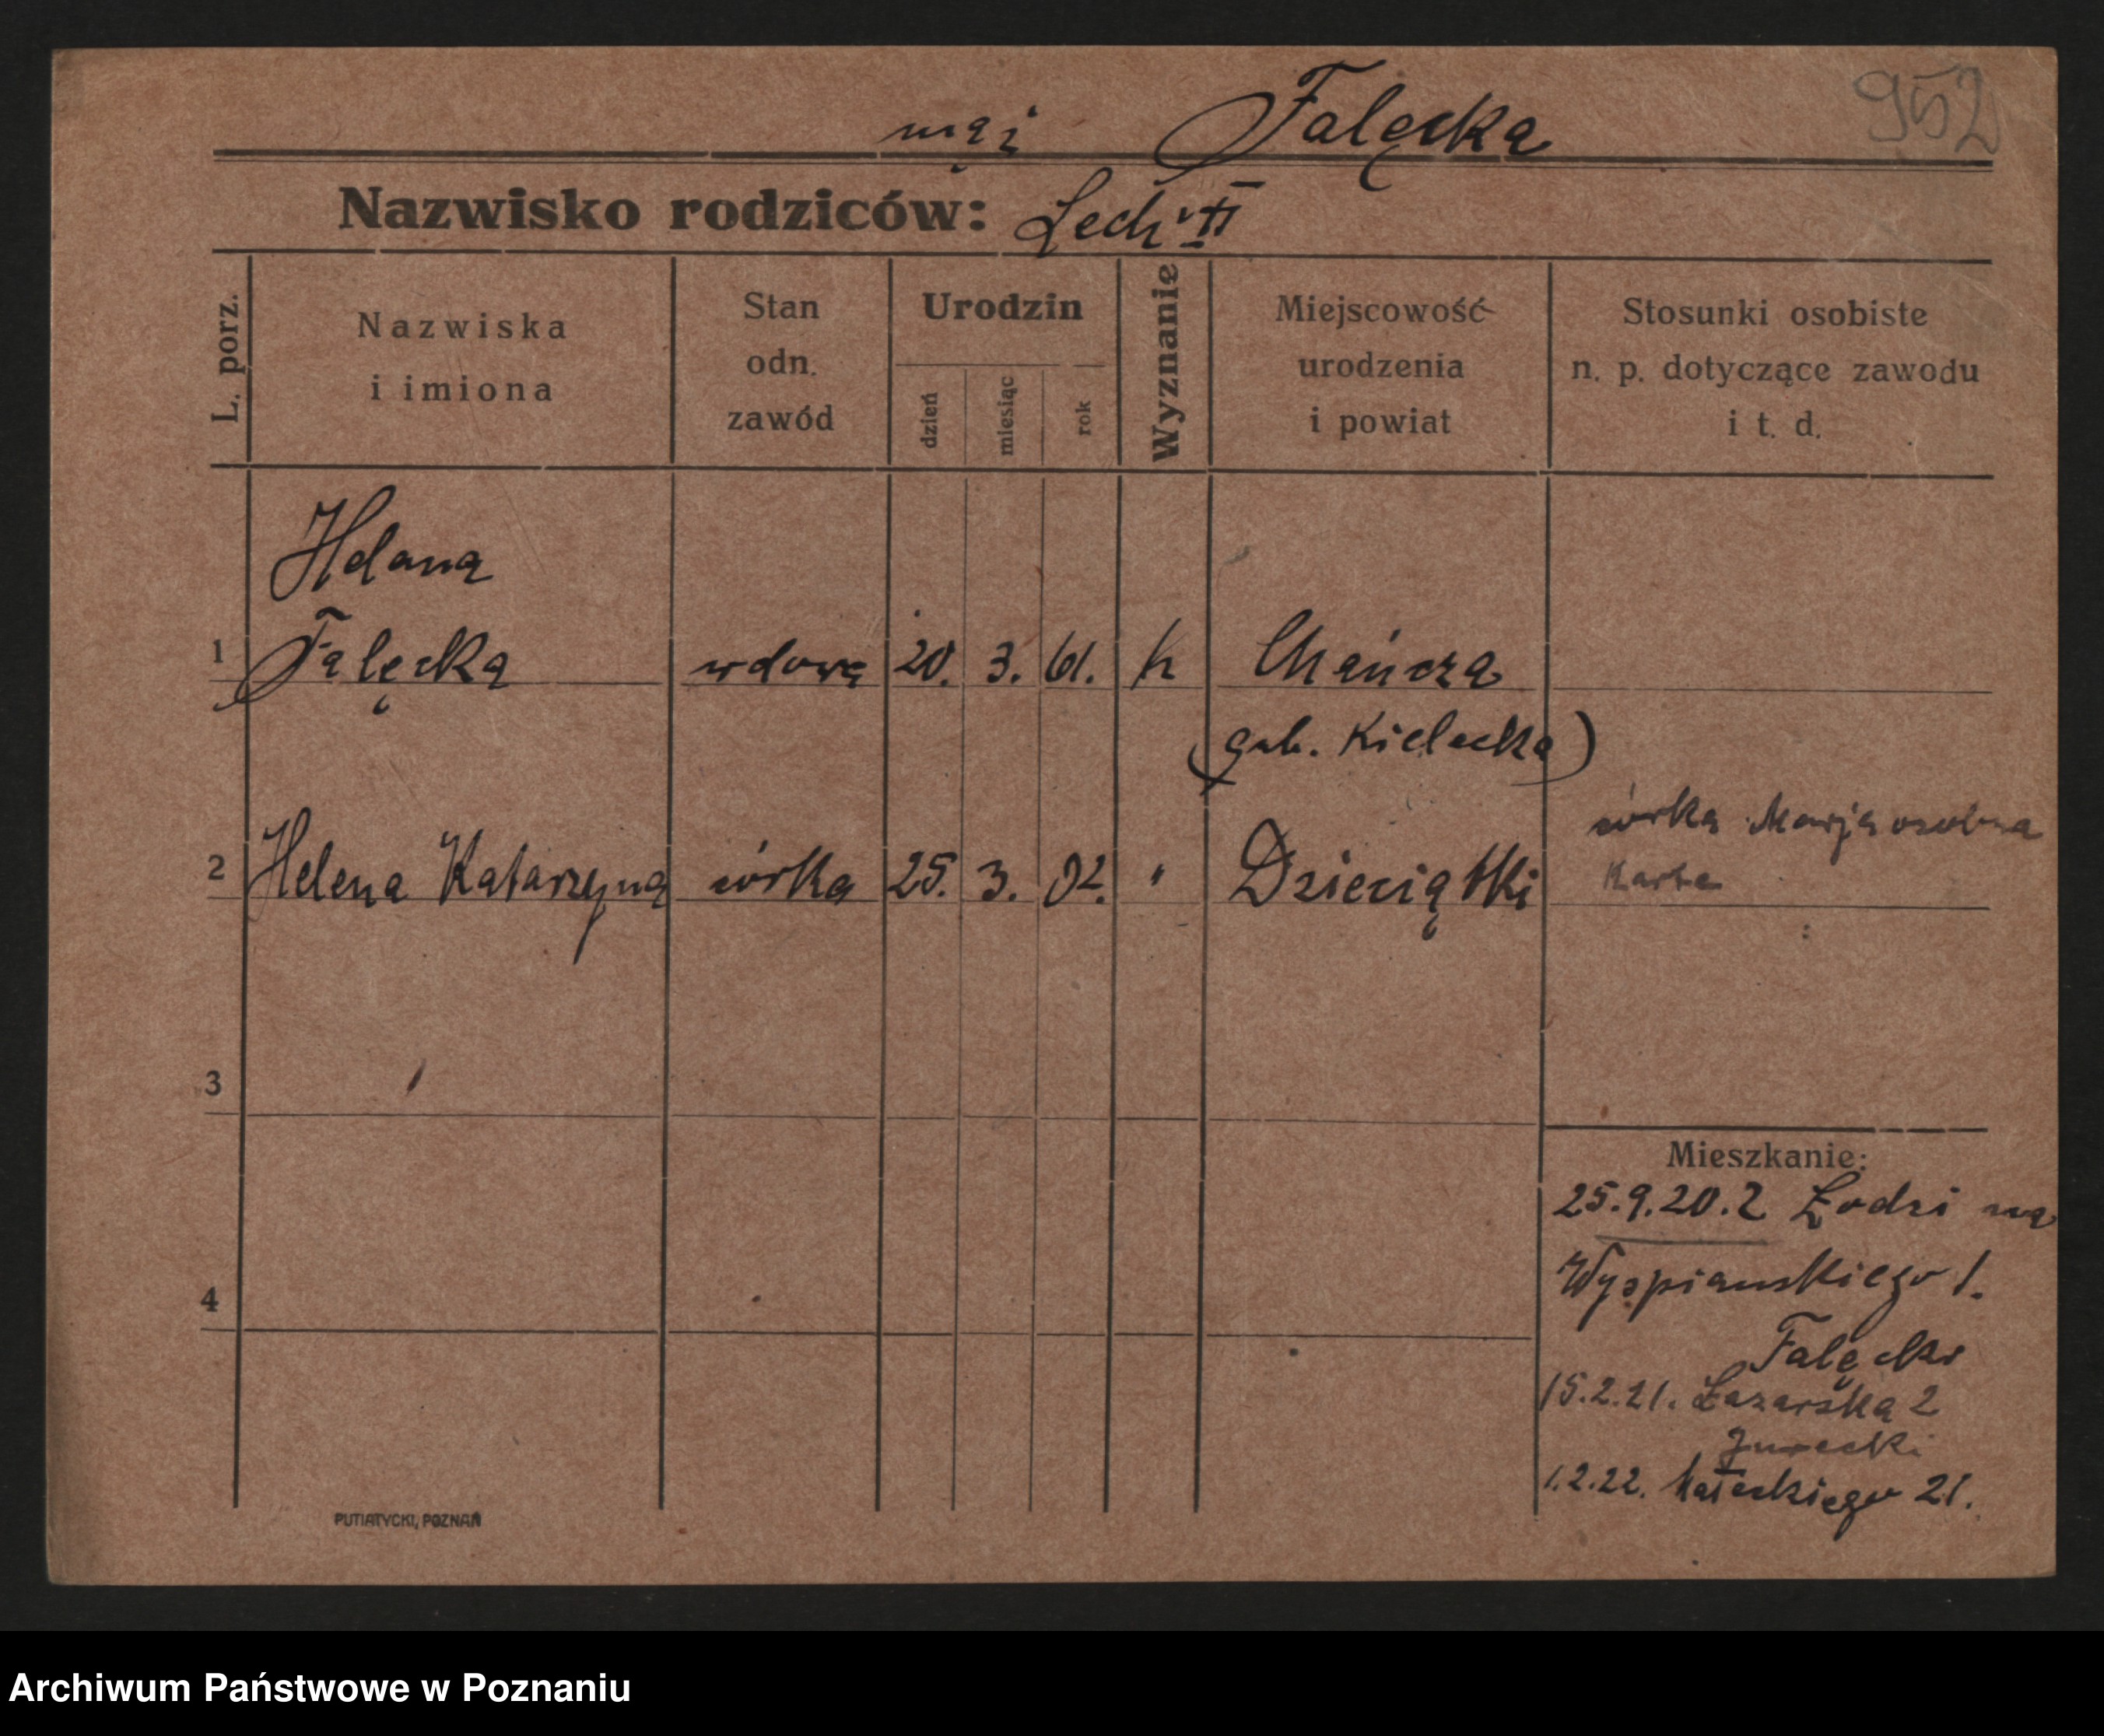 952
mąż Falęcka
Nazwisko rodziców: Lech II
L. porz.
Nazwiska
i imiona
Stan
odn.
zawód
Urodzin
dzień
miesiąc
rok
Wyznanie
Miejscowość
urodzenia
i powiat
Stosunki osobiste
n. p. dotyczące zawodu
i t. d.
Helena
1 Falęcka wdowa 20. 3. 61. k Chańcza
(gub. Kielecka)
córka Marja osobna
Karta
2 Helena Katarzyna córka 25. 3. 02. " Dzieciątki
3
Mieszkanie:
25.9.20. Z Łodzi na
Wyspianskiego 1.
4
Falęcki
15.2.21. Łazarska 2
Jurecki
1.2.22. Małeckiego 21.
PUTIATYCKI, POZNAŃ
Archiwum Państwowe w Poznaniu